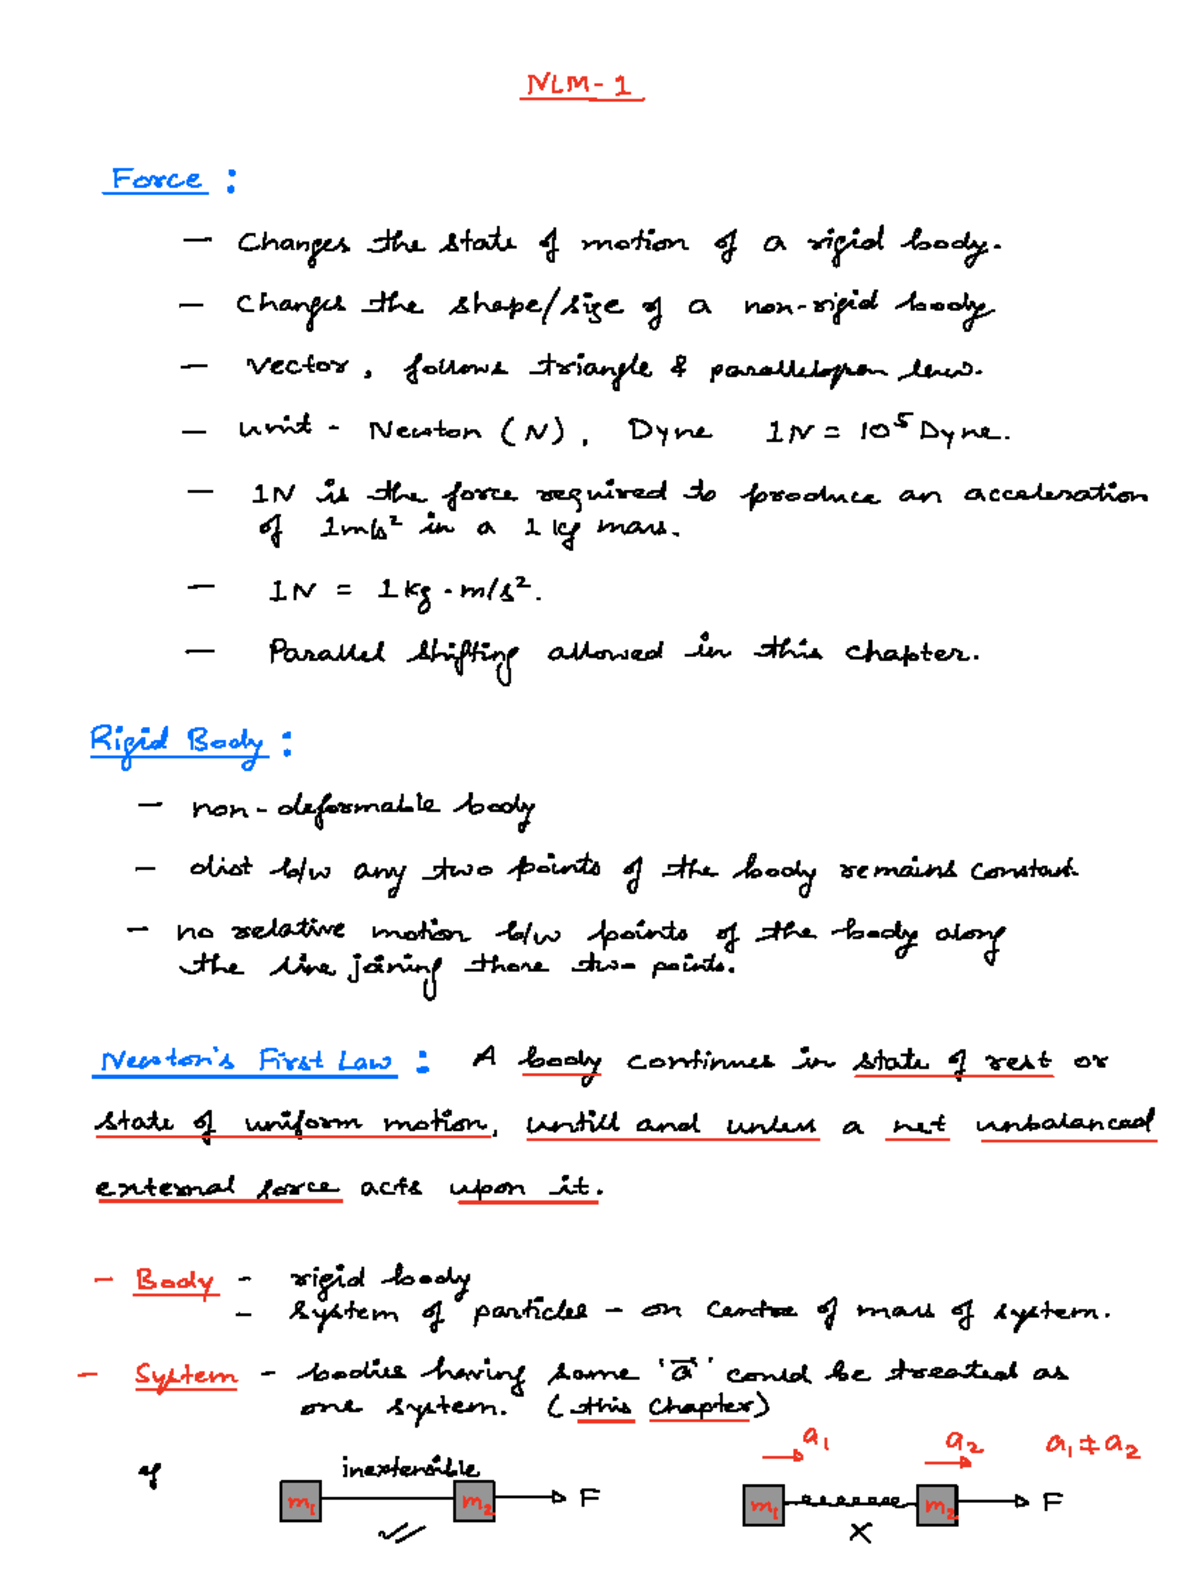 NLM-1
Force :
— Changes the state of motion of a rigid body.
— Changes the shape/size of a non-rigid body
— Vector, follows triangle & parallelogram law.
— unit - Newton (N), Dyne 1N = 10⁵ Dyne.
— 1N is the force required to produce an acceleration
of 1m/s² in a 1 kg mass.
— 1N = 1kg·m/s².
— Parallel shifting allowed in this chapter.
Rigid Body :
— non-deformable body
— dist b/w any two points of the body remains constant
— no relative motion b/w points of the body along
the line joining those two points.
Newton's First Law : A body continues in state of rest or
state of uniform motion, untill and unless a net unbalanced
external force acts upon it.
— Body - rigid body
- system of particles - on centre of mass of system.
— System - bodies having same 'a⃗' could be treated as
one system. (this Chapter)
a₁ a₂ a₁ ≠ a₂
inextensible
m₁ m₂ F m₁ m₂ F